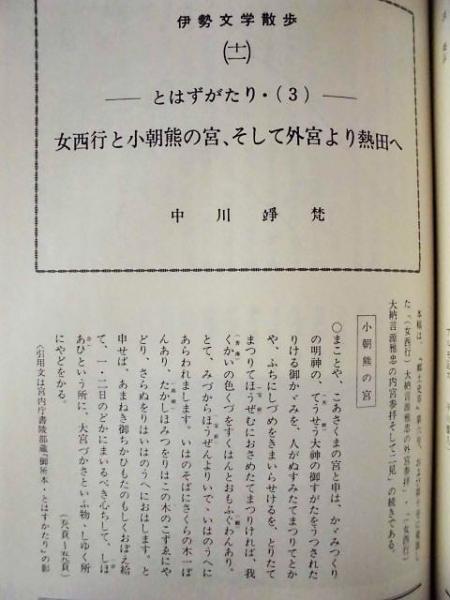 伊勢文学散歩
(十二)
― とはずがたり・(3) ―
女西行と小朝熊の宮、そして外宮より熱田へ
中川竫梵
た「(女西行)大納言源雅忠の外宮参拝」・「(女西行)
大納言源雅忠の内宮参拝そして二見」の続きである。
小朝熊の宮
○まことや、こあさくまの宮と申は、かゞみつくり
の明神の、てうせう大神の御すがたをうつされた
りける御かゞみを、人がぬすみたてまつりてとか
や、ふちにしづめをきまいらせけるを、とりたて
まつりてほうぜむにおさめたてまつりければ、我
くかいの色くづをすくはんとおもふぐわんあり。
とて、みづからほうぜんよりいで、いはのうへに
あらわれまします。いはのそばにさくらの木一ぽ
んあり、たかしほみつをりはこの木のこずゑにや
どり、さらぬをりはいはのうへにおはします。と
申せば、あまねき御ちかひもたのもしくおぼえ給
て、一・二日のどかにまいるべき心ちして、しほ
あひといふ所に、大宮づかさといふ物、しゆく所
にやどをかる。
〈引用文は宮内庁書陵部蔵『御所本・とはすかたり』の影